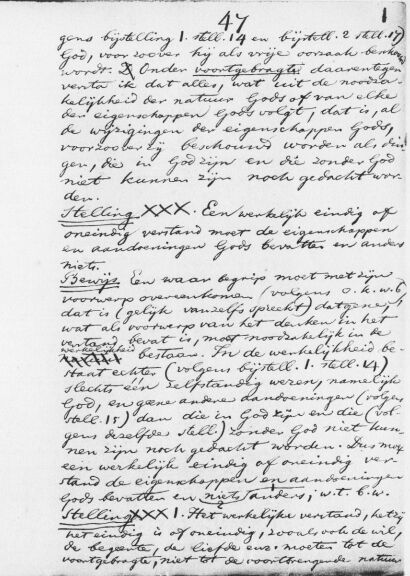 47
1
gens bijstelling 1. stell. 14 en bijstell. 2 stell. 17)
God, voor zoover hij als vrije oorzaak beschouwd
wordt. Onder voortgebragte daarentegen
versta ik dat alles, wat uit de noodza-
kelijkheid der natuur Gods of van elke
der eigenschappen Gods volgt, dat is, al
de wijzigingen der eigenschappen Gods,
voorzoover zij beschouwd worden als din-
gen, die in God zijn en die zonder God
niet kunnen zijn noch gedacht wor-
den.
Stelling XXX. Een werkelijk eindig of
oneindig verstand moet de eigenschappen
en aandoeningen Gods bevatten en anders
niets.
Bewijs Een waar begrip moet met zijn
voorwerp overeenkomen (volgens o.k.w. 6)
dat is (gelijk vanzelf spreekt) datgene,
wat als voorwerp van het denken in het
verstand bevat is, moet noodzakelijk in de
werkelijkheid bestaan. In de werkelijkheid be-
staat echter (volgens bijstell. 1. stell. 14)
slechts één zelfstandig wezen, namelijk
God, en geene andere aandoeningen (volgens
stell. 15) dan die in God zijn en die (vol-
gens dezelfde stell.) zonder God niet kun-
nen zijn noch gedacht worden. Dus moet
een werkelijk eindig of oneindig ver-
stand de eigenschappen en aandoeningen
Gods bevatten en niets anders; w.t.b.w.
Stelling XXXI. Het werkelijke verstand, hetzij
het eindig is of oneindig, zooals ook de wil,
de begeerte, de liefde enz. moeten tot de
voortgebragte, niet tot de voortbrengende natuur